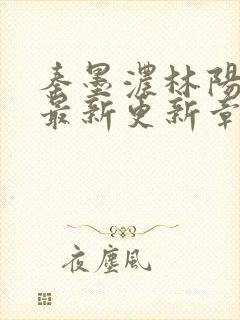 秦墨濃林陽
最新更新章
夜塵風